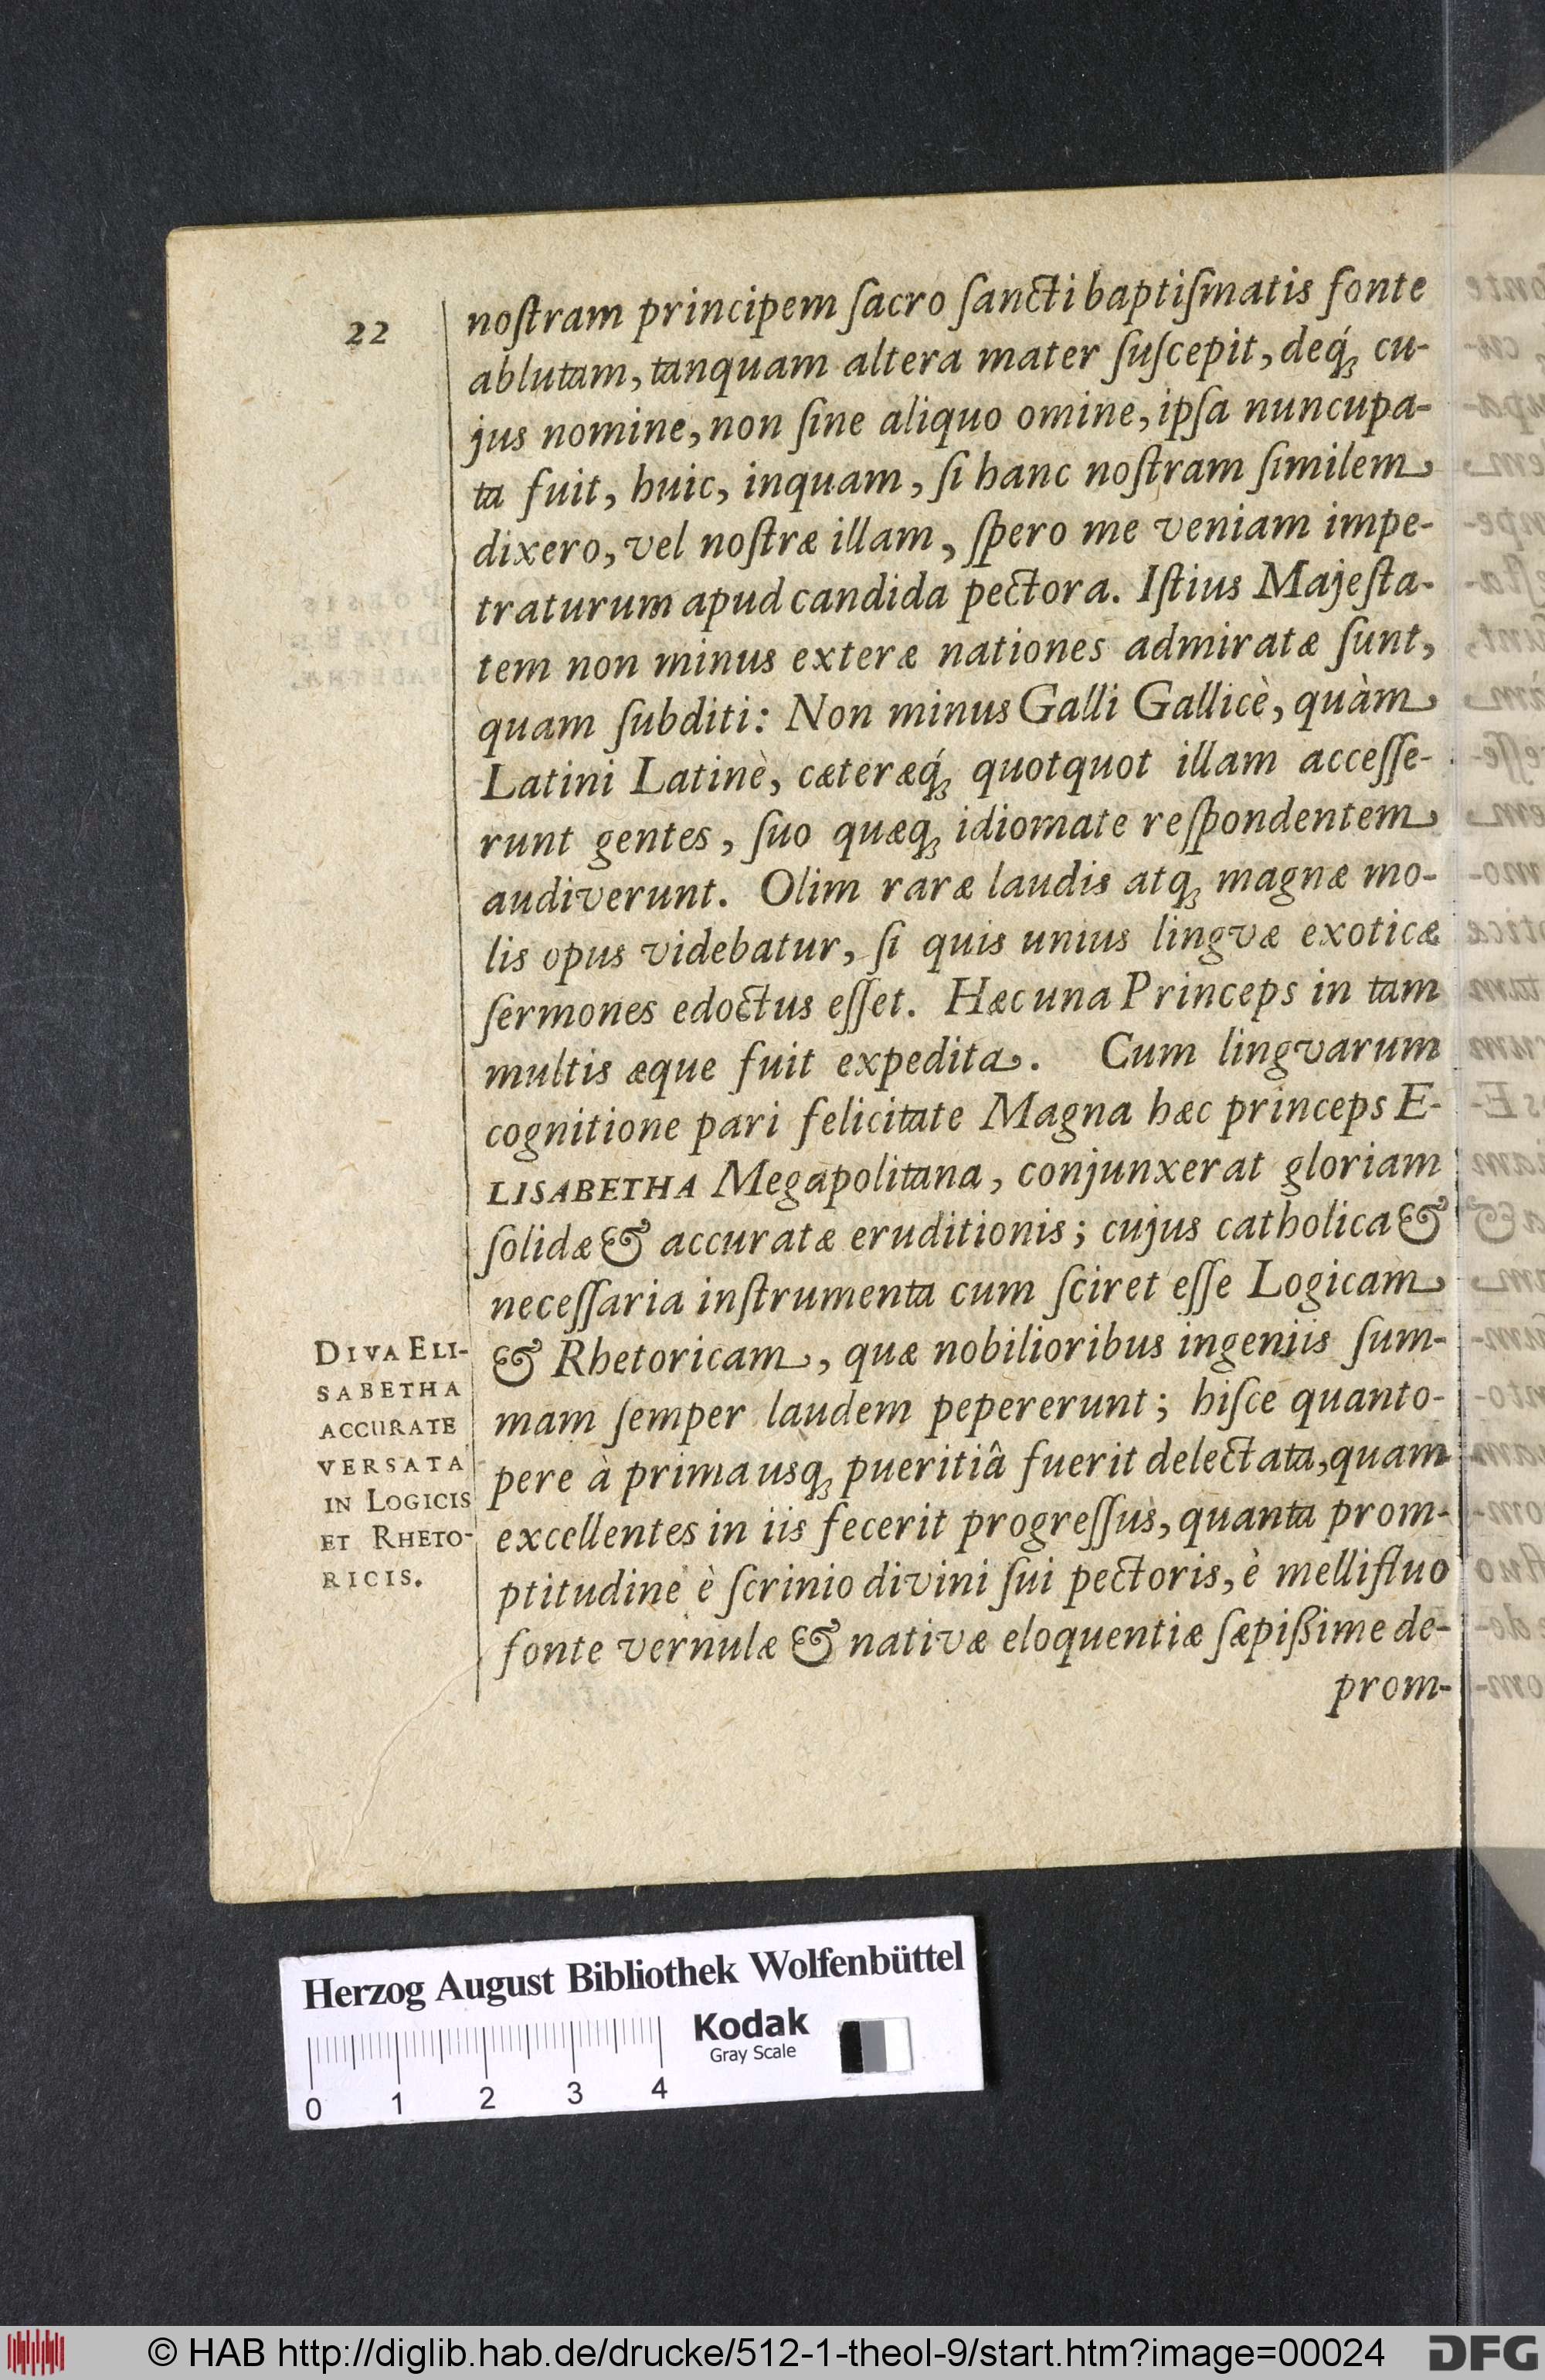 22
noſtram principem ſacro ſancti baptiſmatis fonte
ablutam, tanquam altera mater ſuſcepit, deq́ꝫ cu-
jus nomine, non ſine aliquo omine, ipſa nuncupa-
ta fuit, huic, inquam, ſi hanc noſtram ſimilem
dixero, vel noſtræ illam, ſpero me veniam impe-
traturum apud candida pectora. Iſtius Majeſta-
tem non minus exteræ nationes admiratæ ſunt,
quam ſubditi: Non minus Galli Gallicè, quàm
Latini Latinè, cæteræq́ꝫ quotquot illam acceſſe-
runt gentes, ſuo quæqꝫ idiomate reſpondentem
audiverunt. Olim raræ laudis atqꝫ magnæ mo-
lis opus videbatur, ſi quis unius lingvæ exoticæ
ſermones edoctus eſſet. Hæc una Princeps in tam
multis æque fuit expedita. Cum lingvarum
cognitione pari felicitate Magna hæc princeps E-
LISABETHA Megapolitana, conjunxerat gloriam
ſolidæ & accuratæ eruditionis; cujus catholica &
neceſſaria inſtrumenta cum ſciret eſſe Logicam
& Rhetoricam, quæ nobilioribus ingeniis ſum-
mam ſemper laudem pepererunt; hiſce quanto-
pere à prima usqꝫ pueritiâ fuerit delectata, quam
excellentes in iis fecerit progreſſus, quanta prom-
ptitudine è ſcrinio divini ſui pectoris, è mellifluo
fonte vernulæ & nativæ eloquentiæ ſæpißime de-
prom-
DIVA ELI-
SABETHA
ACCURATE
VERSATA
IN LOGICIS
ET RHETO-
RICIS.
Herzog August Bibliothek Wolfenbüttel
Kodak
Gray Scale
0 1 2 3 4
© HAB http://diglib.hab.de/drucke/512-1-theol-9/start.htm?image=00024
DFG